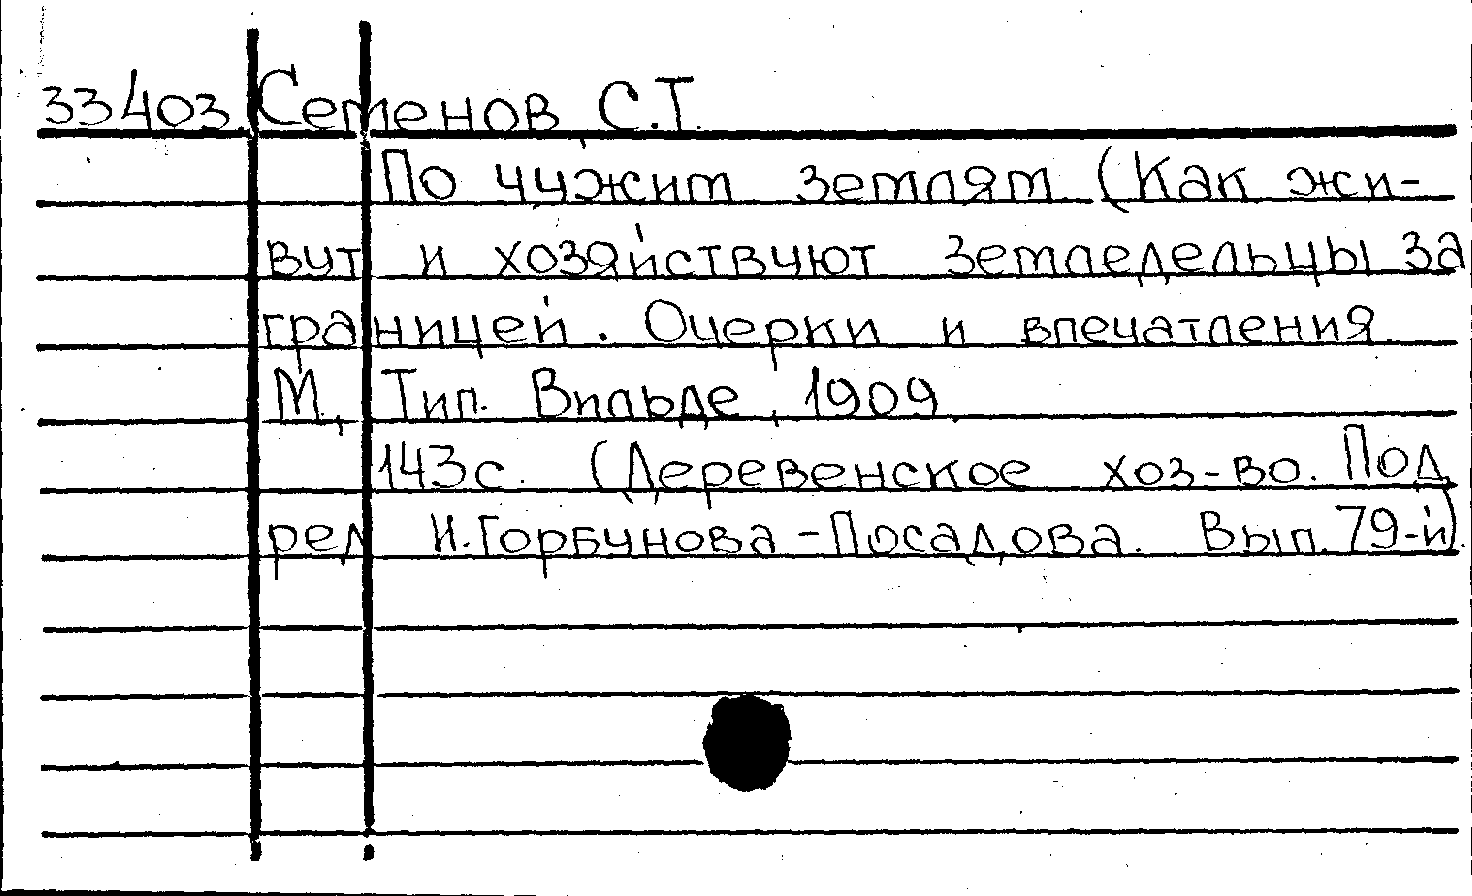 33403. Семенов С.Т.
По чужим землям (Как жи-
вут и хозяйствуют земледельцы за
границей. Очерки и впечатления
М, Тип. Вильде, 1909.
143с. (Деревенское хоз-во. Под
ред И.Горбунова-Посадова. Вып.79-й).